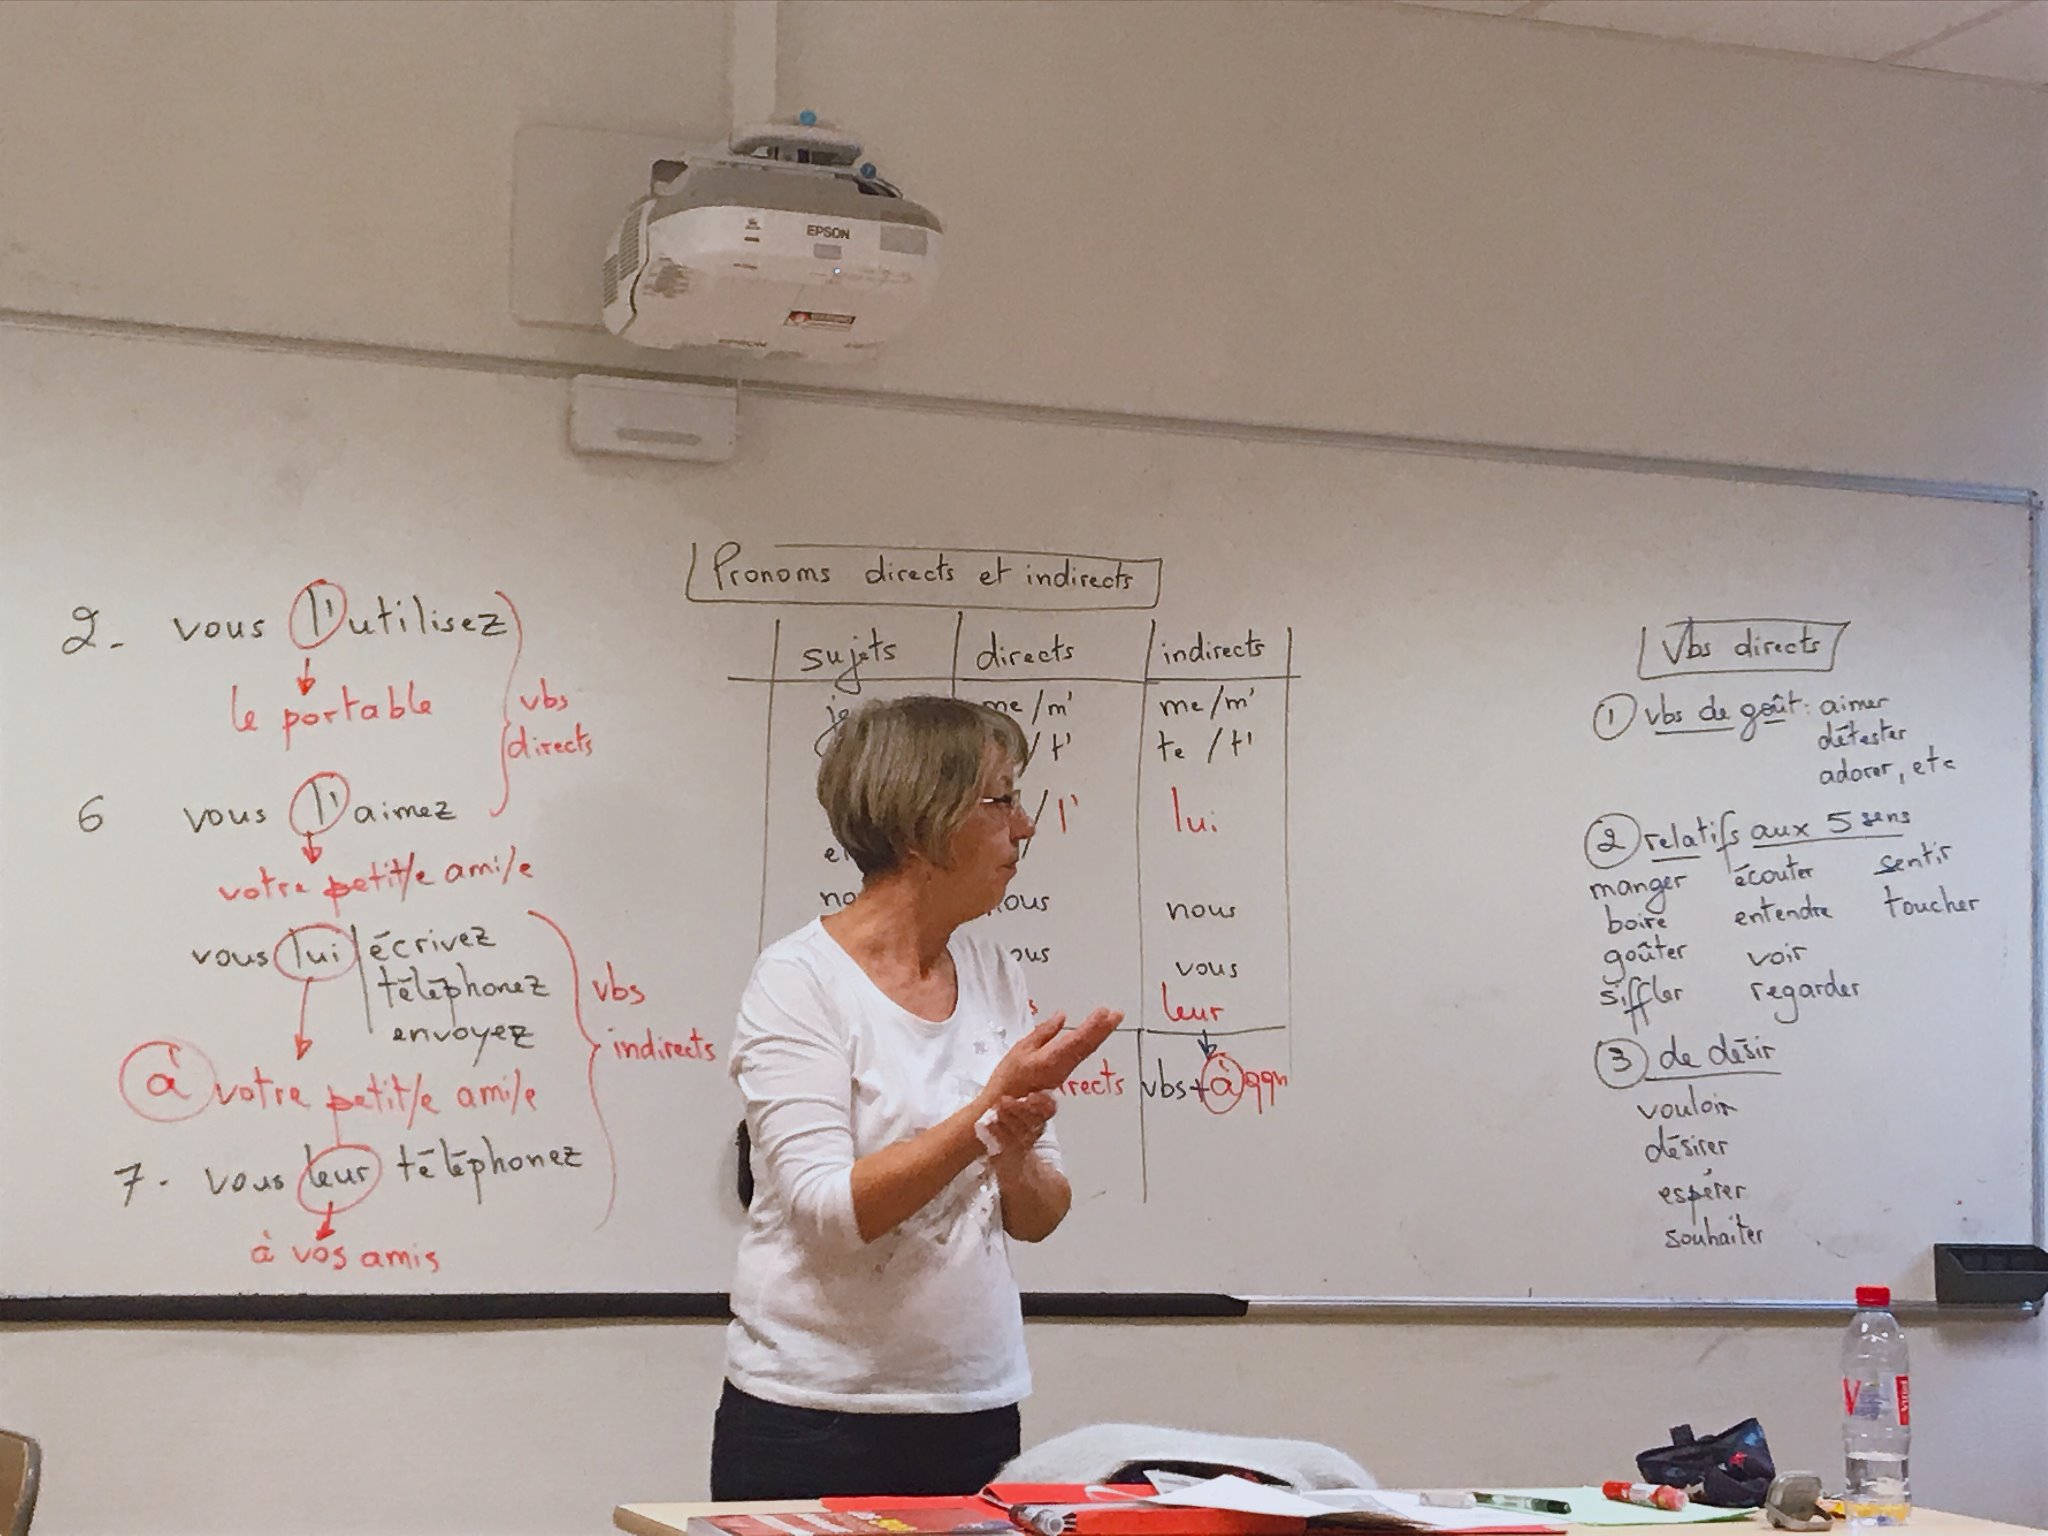 EPSON
2- vous l'utilisez
le portable
vbs
directs
6 vous l'aimez
votre petit/e ami/e
vous lui écrivez
téléphonez
envoyez
vbs
indirects
à votre petit/e ami/e
7. vous leur téléphonez
à vos amis
Pronoms directs et indirects
sujets directs indirects
me/m' me/m'
/t' te/t'
/l' lui
nous
vous
leur
vbs+à qqn
Vbs directs
1 vbs de goût: aimer
détester
adorer, etc
2 relatifs aux 5 sens
manger écouter sentir
boire entendre toucher
goûter voir
siffler regarder
3 de désir
vouloir
désirer
espérer
souhaiter